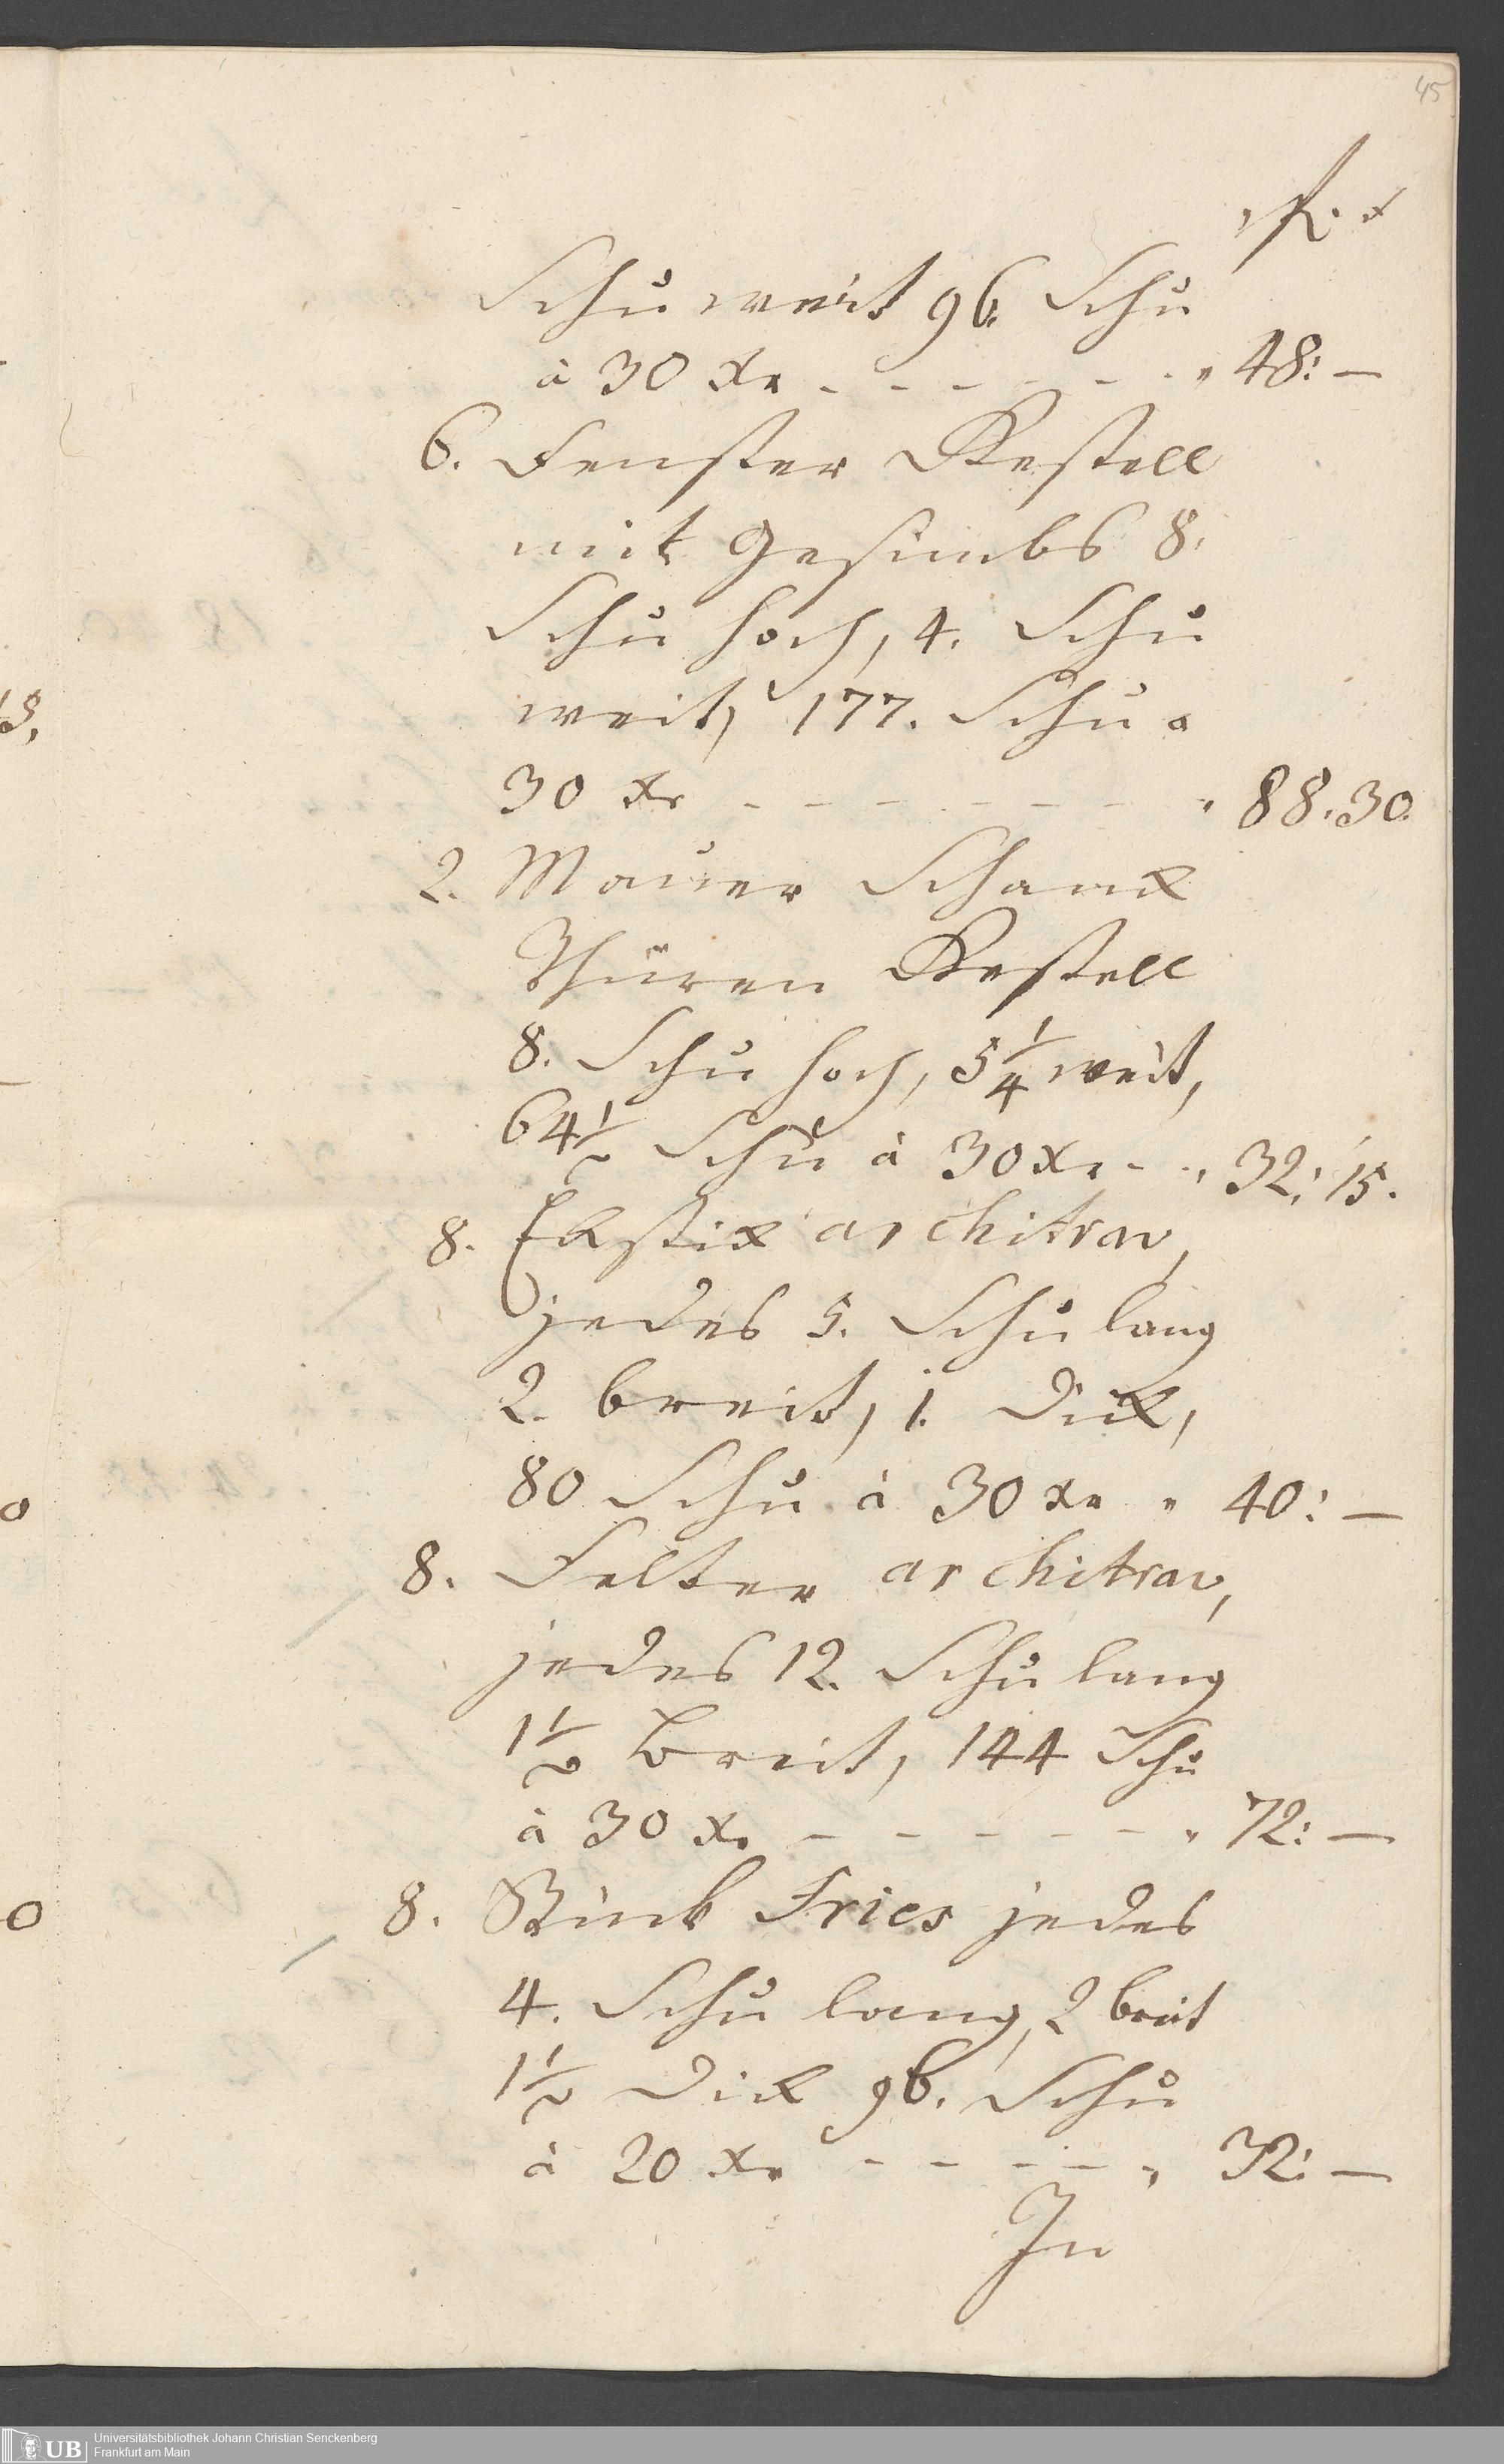 45
fl. x
Schu weit 96. Schu
à 30 Xr - - - - - - " 48: —
6. Fenster Gestell
mit Gesimbs 8.
Schu hoch, 4. Schu
weit, 177. Schu a
30 Xr - - - - - - - " 88. 30.
2. Mauer Schanck
Thüren Gestell
8. Schu hoch, 5 1/4 weit,
64 1/2 Schu à 30 Xr - - " 32: 15.
8. Eckstick architrav,
jedes 5. Schu lang
2. breit, 1. Dick,
80 Schu à 30 Xr " 40: —
8. Felter architrav,
jedes 12. Schu lang
1 1/2 breit, 144 Schu
à 30 Xr - - - - - " 72: —
8. Stück Fries jedes
4. Schu lang, 2 breit
1 1/2 Dick 96. Schu
à 20 Xr - - - - - " 32: —
In
UB
Universitätsbibliothek Johann Christian Senckenberg
Frankfurt am Main